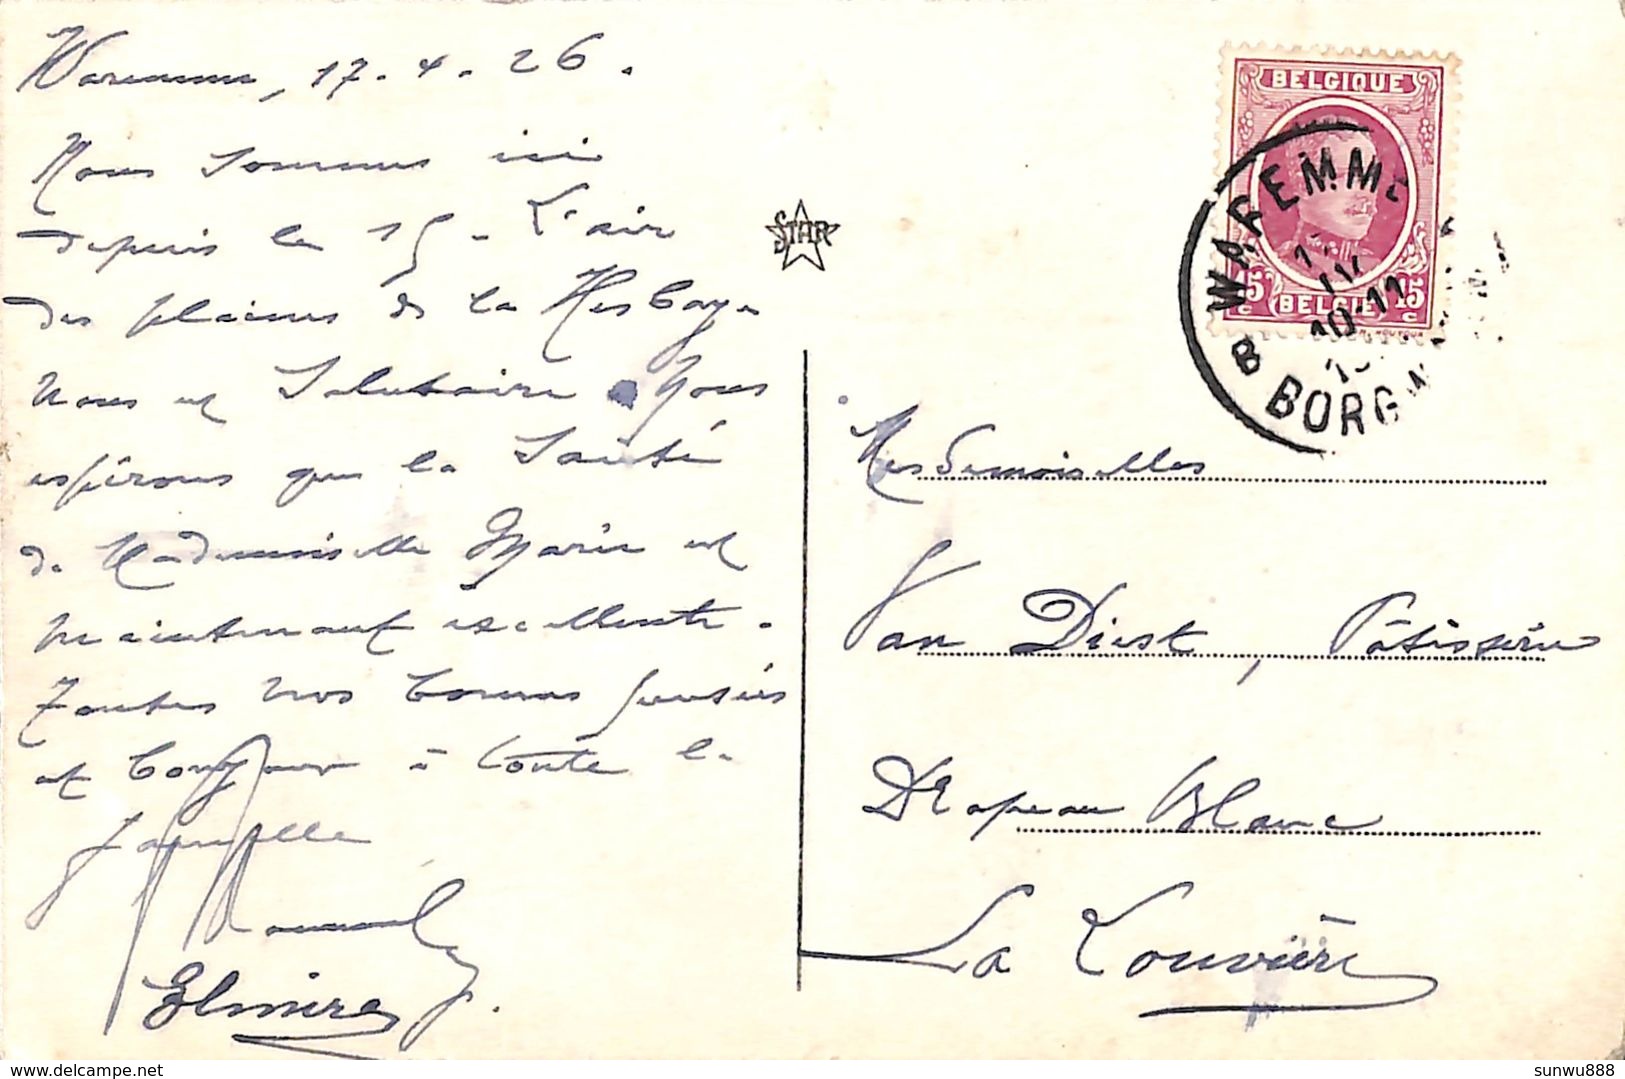 Waremme, 17-4-26.
Nous sommes ici
depuis le 15 - L'air
des plaines de la Hesbaye
nous est salutaire. Nous
espérons que la santé
de Mademoiselle Marie est
maintenant excellente.
Toutes nos bonnes pensées
et bonjour à toute la
famille
Elmire
STAR
BELGIQUE
15 BELGIË 15
c c
WAREMME
10-11
B BORGW
Mesdemoiselles
Van Diest, Pâtisserie
Drapeau Blanc
La Louvière
www.delcampe.net
sunwu888